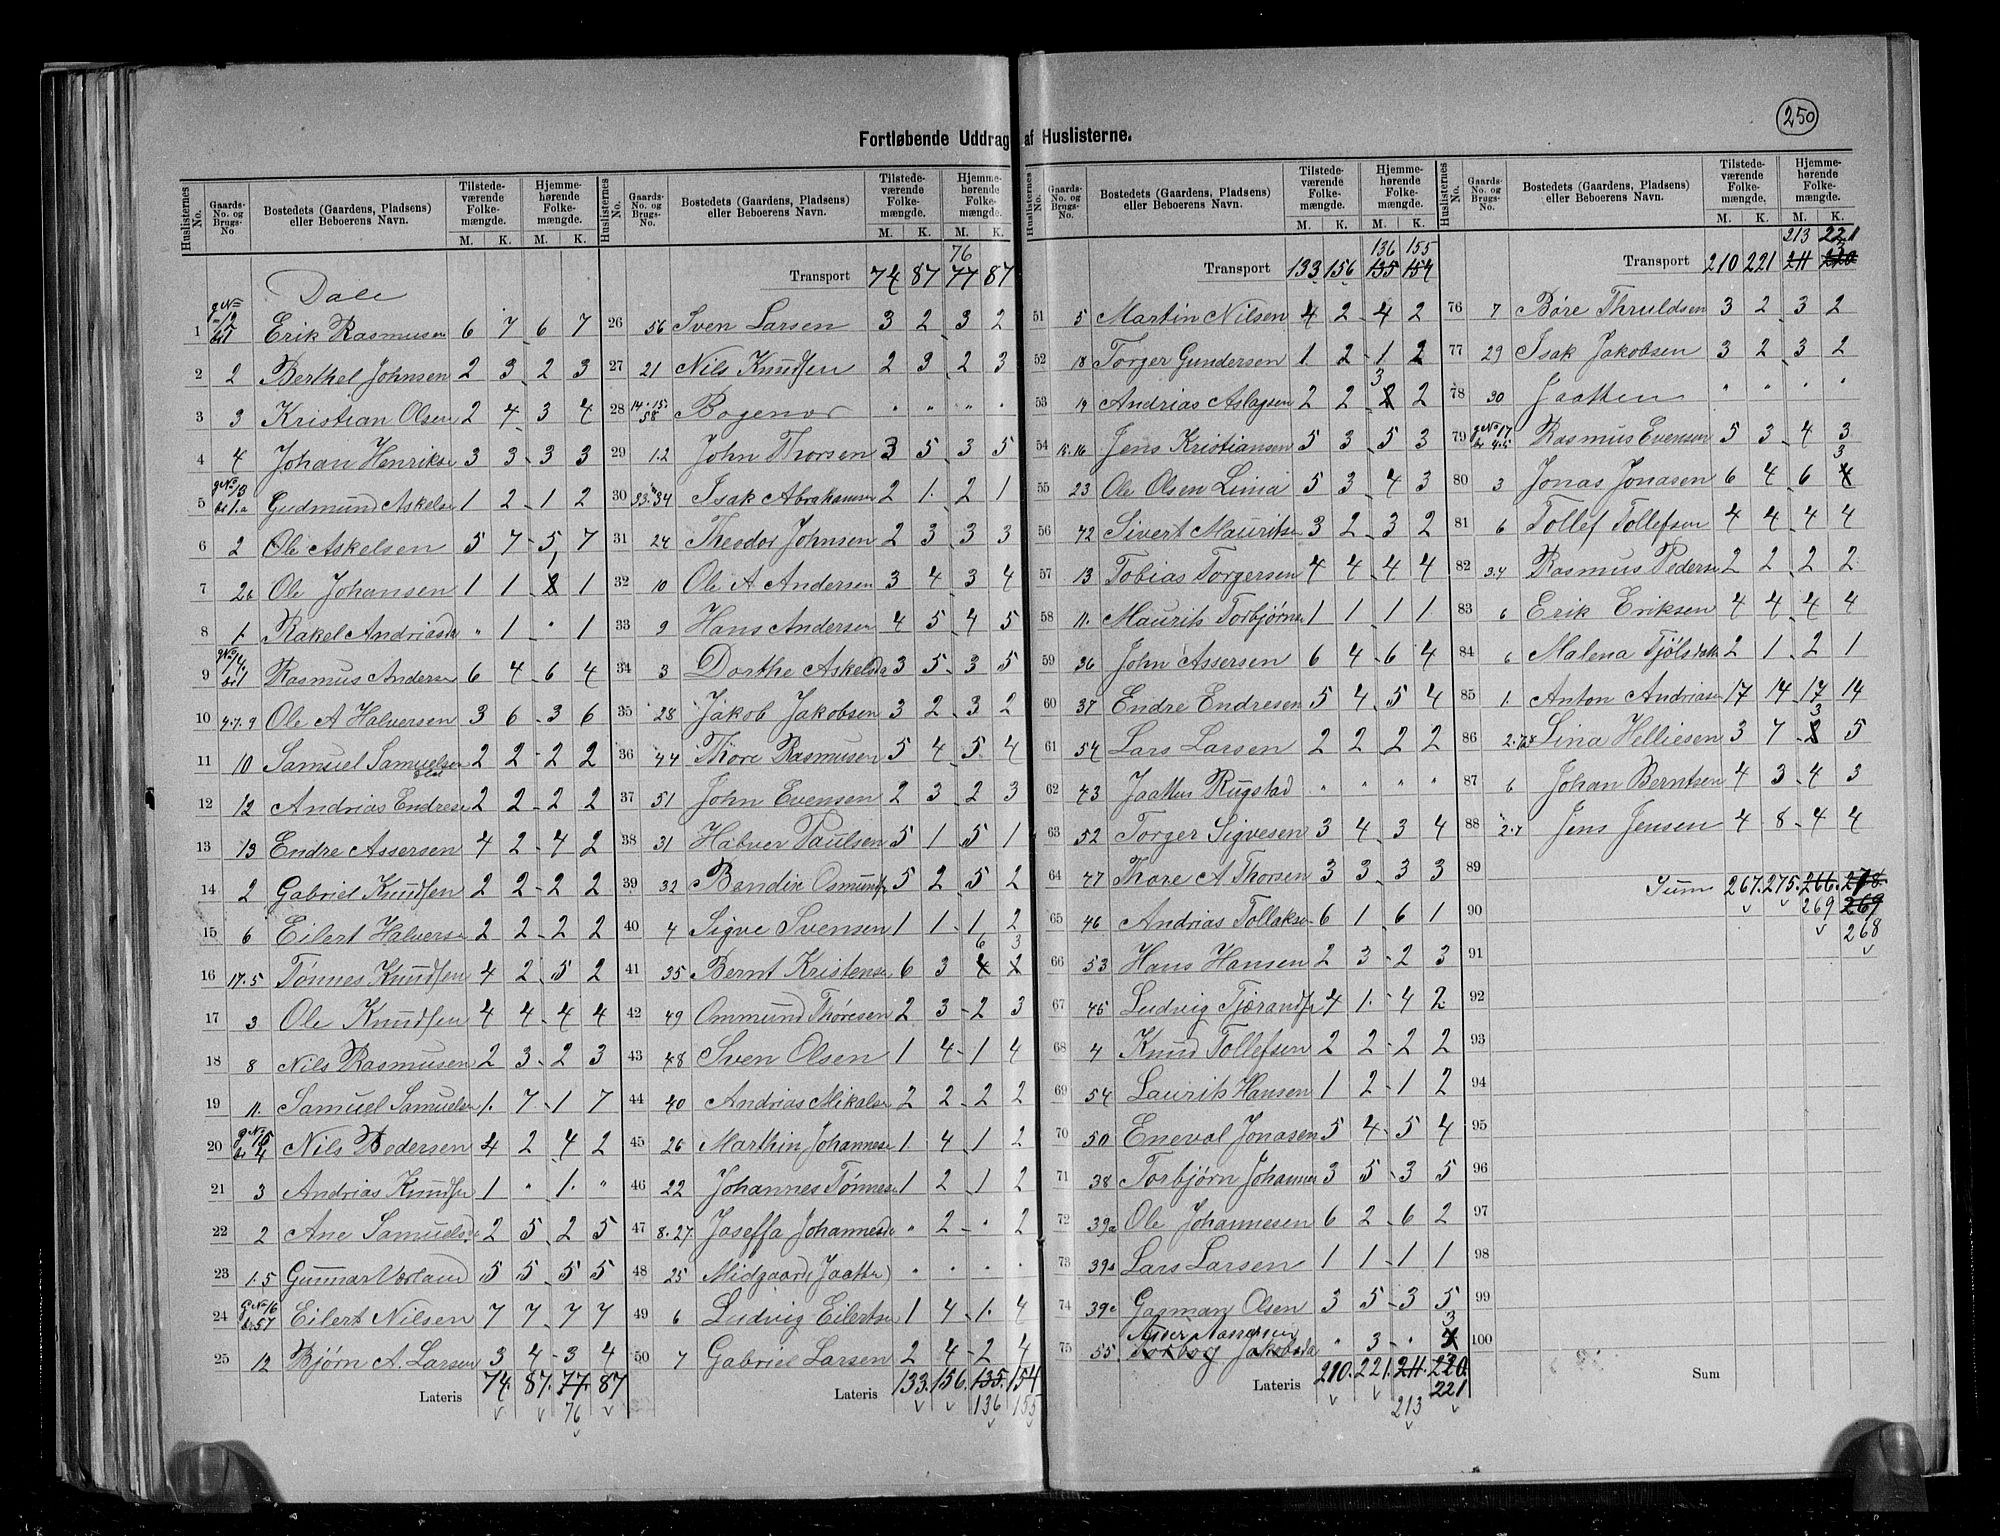 250
Fortløbende Uddrag af Huslisterne.
Huslisternes No. | Gaards-No. og Brugs-No | Bostedets (Gaardens, Pladsens) eller Beboerens Navn. | Tilstedeværende Folkemængde. M. K. | Hjemmehørende Folkemængde. M. K.
Dale
1 Erik Rasmusen 6 7 6 7
2 2 Berthel Johnsen 2 3 2 3
3 3 Kristian Olsen 2 4 3 4
4 4 Johan Henrikse 3 3 3 3
5 Gudmund Askelse 1 2 1 2
6 2 Ole Askelsen 5 7 5 7
7 Ole Johansen 1 1 1 1
8 1. Rakel Andriasda " 1 " 1
9 Rasmus Anderse 6 4 6 4
10 4.7.9 Ole A Halversen 3 6 3 6
11 10 Samuel Samuelsen 2 2 2 2
12 12 Andrias Endrese 2 2 2 2
13 13 Endre Assersen 4 2 4 2
14 2 Gabriel Knudsen 2 2 2 2
15 6 Eilert Halverse 2 2 2 2
16 17.5 Tønnes Knudsen 4 2 5 2
17 3 Ole Knudsen 4 4 4 4
18 8 Nils Rasmusen 2 3 2 3
19 11. Samuel Samuelse 1. 7 1 7
20 Nils Pedersen 4 2 4 2
21 3 Andrias Knudse 1 " 1. "
22 2 Ane Samuelsd 2 5 2 5
23 1.5 Gunnar Værland 5 5 5 5
24 Eilert Nilsen 7 7 7 7
25 12 Bjørn A. Larsen 3 4 3 4
Lateris 74. 87. 77. 87
76
Huslisternes No. | Gaards-No. og Brugs-No. | Bostedets (Gaardens, Pladsens) eller Beboerens Navn. | Tilstedeværende Folkemængde. M. K. | Hjemmehørende Folkemængde. M. K.
76
Transport 74 87 77 87
26 56 Sven Larsen 3 2 3 2
27 21 Nils Knudsen 2 3 2 3
28 14.15. 58 " " " "
29 1.2 John Thorsen 3 5 3 5
30 33.34 Isak Abrahamse 2 1. 2 1
31 24 Theodor Johnsen 2 3 3 3
32 10 Ole A Andersen 3 4 3 4
33 9 Hans Andersen 4 5 4 5
34 3 Dorthe Askelsda 3 5 3 5
35 28 Jakob Jakobsen 3 2 3 2
36 44 Thore Rasmusen 5 4 5 4
37 51 John Evensen 2 3 2 3
38 31 Halver Paulsen 5 1 5 1
39 32 Bendix Osmunds 5 2 5 2
40 4 Sigve Svensen 1 1 1 2
41 35 Bernt Kristense 6 3 6 3
42 49 Ommund Thoresen 2 3 2 3
43 48 Sven Olsen 1 4 1 4
44 40 Andrias Mikalse 2 2 2 2
45 26 Marthin Johannese 1 4 1 2
46 22 Johannes Tønnese 1 2 1 2
47 8.27. Joseffa Johannesda " 2 " 2
48 25 Midgaard (Jaatte) " " " "
49 6 Ludvig Eilertse 1 4 1. 4
50 7 Gabriel Larsen 2 4 2 4
Lateris 133. 156. 135. 154
136 155
Huslisternes No. | Gaards-No. og Brugs-No. | Bostedets (Gaardens, Pladsens) eller Beboerens Navn. | Tilstedeværende Folkemængde. M. K. | Hjemmehørende Folkemængde. M. K.
136 155
Transport 133 156 135 154
51 5 Martin Nilsen 4 2 4 2
52 18 Torger Gundersen 1. 2 1 2
53 19 Andrias Aslagsen 2 2 3 2
54 15.16 Jens Kristiansen 5 3 5 3
55 23 Ole Olsen Lima 5 3 4 3
56 72 Sivert Mauritse 3 2 3 2
57 13 Tobias Torgersen 4 4 4 4
58 11. Maurits Torbjørnse 1 1 1 1.
59 36 John Assersen 6 4 6 4
60 37 Endre Endresen 5 4 5 4
61 54 Lars Larsen 2 2 2 2
62 43 Jaatten Rugstad " " " "
63 52 Torger Sigvesen 3 4 3 4
64 47 Thore A Thorsen 3 3 3 3
65 46 Andrias Tollakse 6 1 6 1
66 53 Hans Hansen 2 3 2 3
67 45 Ludvig Tjærandse 4 1. 4 2
68 4 Knud Tollefsen 2 2 2 2
69 54 Laurits Hansen 1 2 1 2
70 50 Eneval Jonasen 5 4 5 4
71 38 Torbjørn Johannes 3 5 3 5
72 39a Ole Johannesen 6 2 6 2
73 39b Lars Larsen 1 1 1 1
74 39c Gagman Olsen 3 5 3 5
75 55 Torborg Jakobsda " 3 " 3
Lateris 210. 221. 211. 220.
213 221
Huslisternes No. | Gaards-No. og Brugs-No. | Bostedets (Gaardens, Pladsens) eller Beboerens Navn. | Tilstedeværende Folkemængde. M. K. | Hjemmehørende Folkemængde. M. K.
213 221
Transport 210 221 211 220
76 7 Børe Thruldsen 3 2 3 2
77 29 Isak Jakobsen 3 2 3 2
78 30 Jaatten " " " "
79 Rasmus Evensen 5 3 4 3
80 3 Jonas Jonasen 6 4 6 3
81 6 Tollef Tollefsen 4 4 4 4
82 3.4 Rasmus Pederse 2 2 2 2
83 6 Erik Eriksen 4 4 4 4
84 6 Malena Tjølsdatt 2 1 2 1
85 1. Anton Andriasen 17 14 17 14
86 Lina Helliesen 3 7 3 5
87 6 Johan Berntsen 4 3 4 3
88 2.7 Jens Jensen 4 8 4 4
89
Sum 267. 275. 266. 278.
90 269 269
268
91
92
93
94
95
96
97
98
99
100
Sum